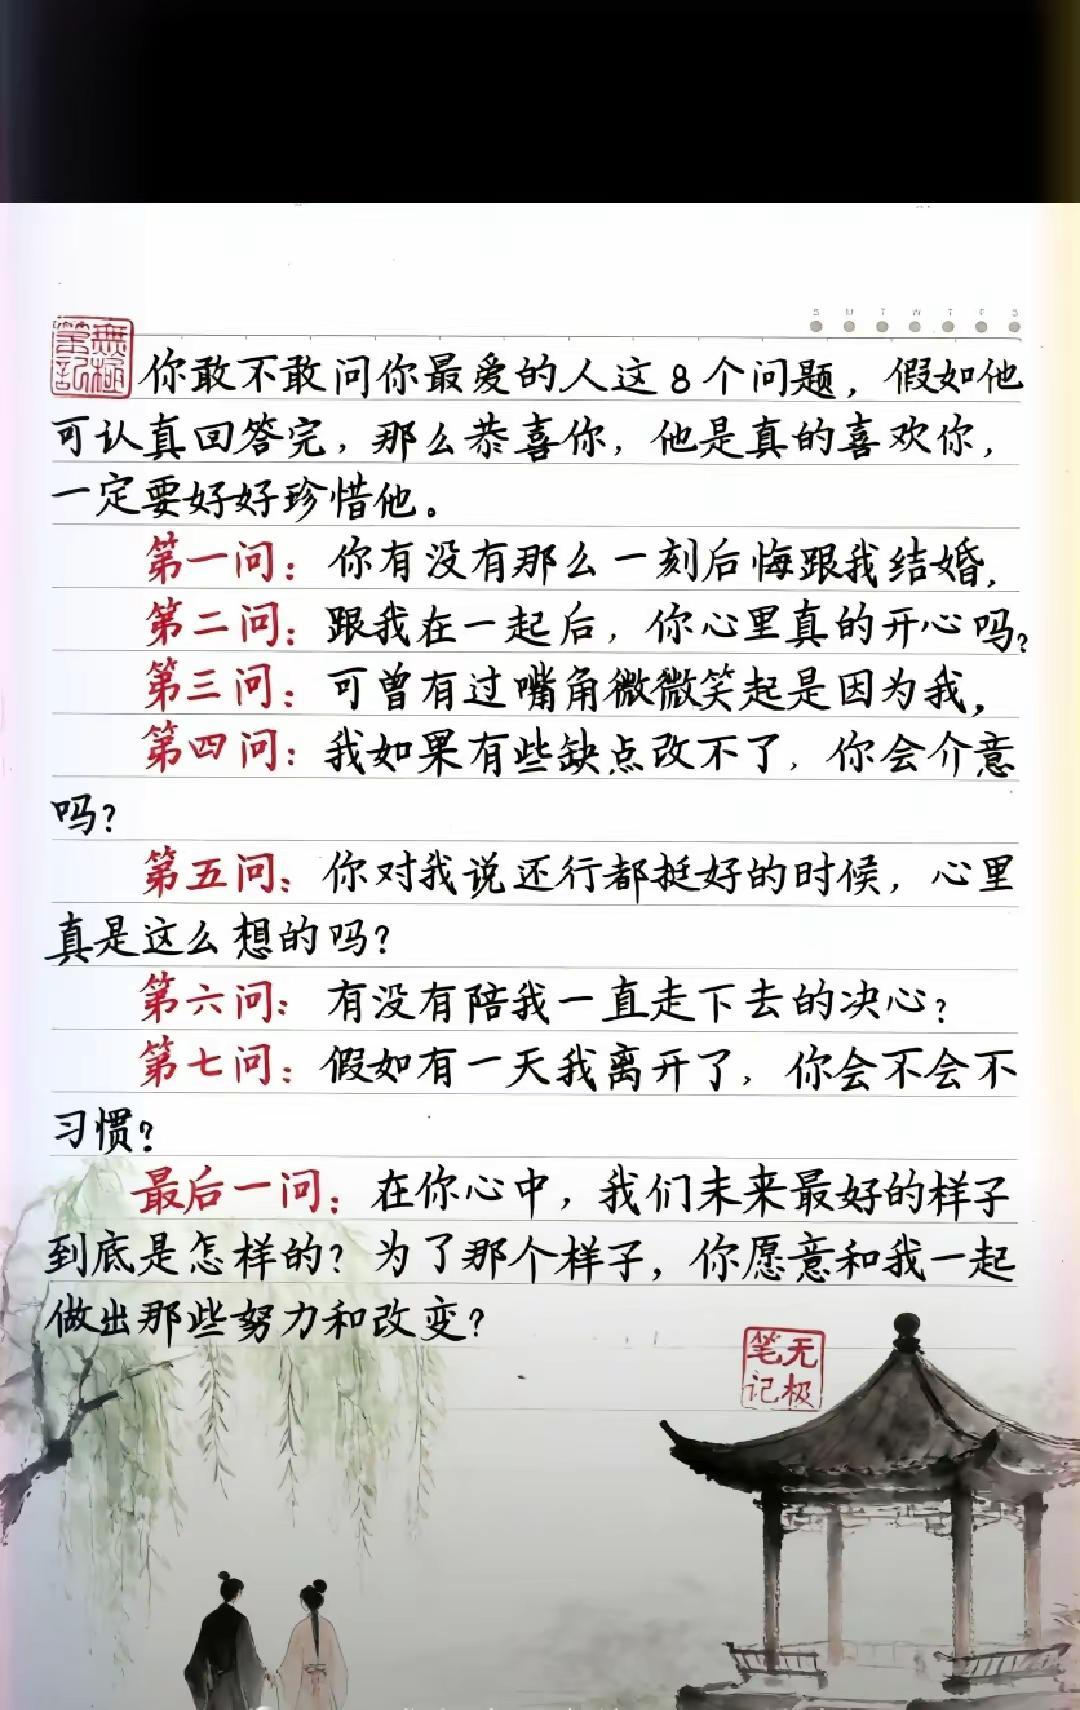 S M T W T F S
無極筆記
你敢不敢问你最爱的人这8个问题，假如他
可认真回答完，那么恭喜你，他是真的喜欢你，
一定要好好珍惜他。
第一问：你有没有那么一刻后悔跟我结婚，
第二问：跟我在一起后，你心里真的开心吗？
第三问：可曾有过嘴角微微笑起是因为我，
第四问：我如果有些缺点改不了，你会介意
吗？
第五问：你对我说还行都挺好的时候，心里
真是这么想的吗？
第六问：有没有陪我一直走下去的决心？
第七问：假如有一天我离开了，你会不会不
习惯？
最后一问：在你心中，我们未来最好的样子
到底是怎样的？为了那个样子，你愿意和我一起
做出那些努力和改变？
无极笔记